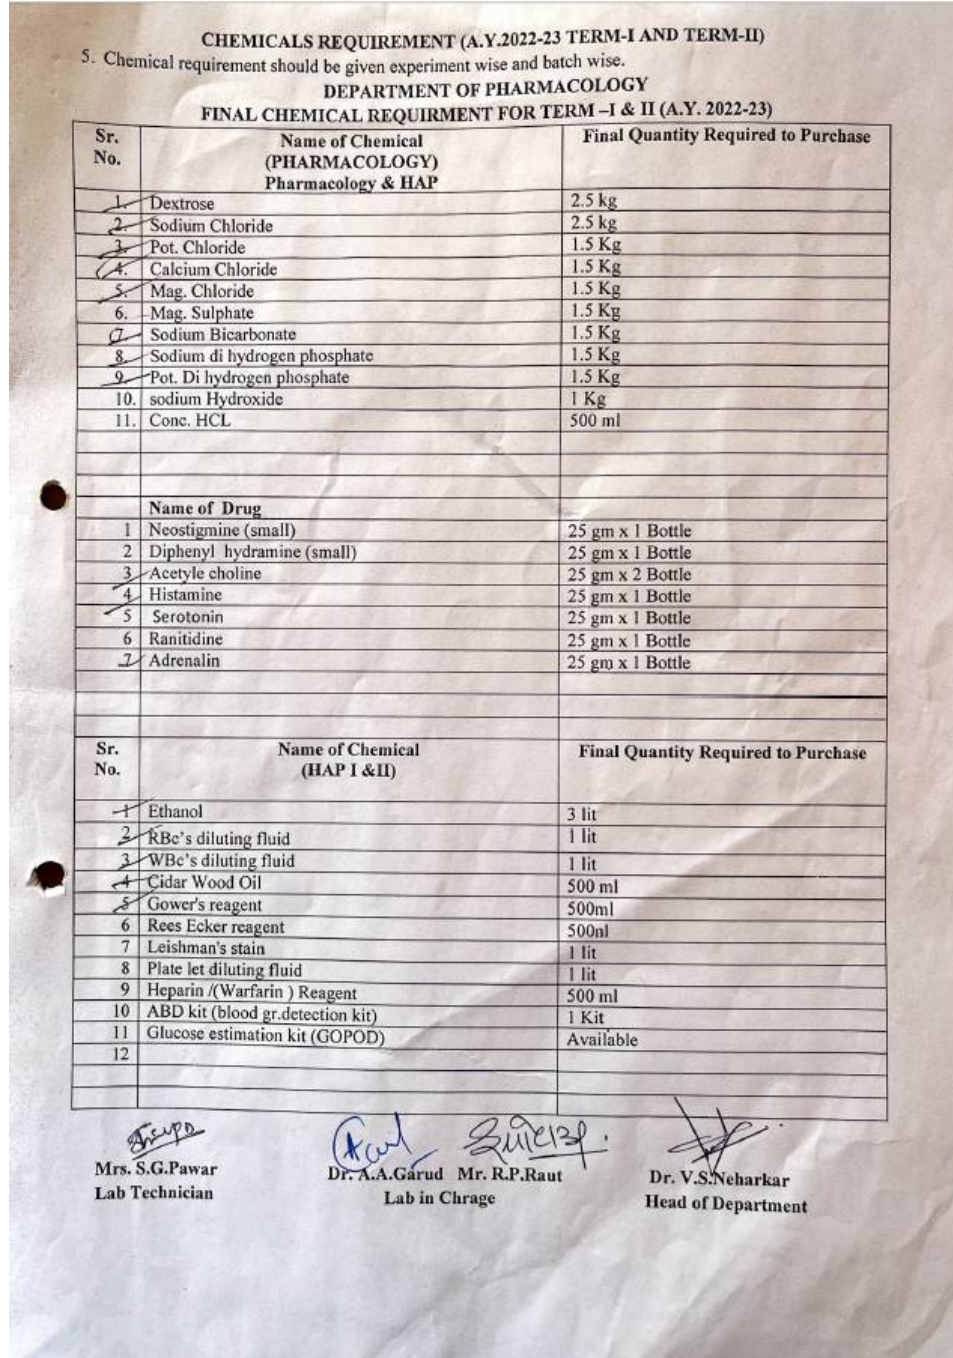 CHEMICALS REQUIREMENT (A.Y.2022-23 TERM-I AND TERM-II)
5. Chemical requirement should be given experiment wise and batch wise.
DEPARTMENT OF PHARMACOLOGY
FINAL CHEMICAL REQUIRMENT FOR TERM –I & II (A.Y. 2022-23)
Sr. No. Name of Chemical (PHARMACOLOGY) Pharmacology & HAP Final Quantity Required to Purchase
1. Dextrose 2.5 kg
2. Sodium Chloride 2.5 kg
3. Pot. Chloride 1.5 Kg
4. Calcium Chloride 1.5 Kg
5. Mag. Chloride 1.5 Kg
6. Mag. Sulphate 1.5 Kg
7. Sodium Bicarbonate 1.5 Kg
8. Sodium di hydrogen phosphate 1.5 Kg
9. Pot. Di hydrogen phosphate 1.5 Kg
10. sodium Hydroxide 1 Kg
11. Conc. HCL 500 ml
Name of Drug
1 Neostigmine (small) 25 gm x 1 Bottle
2 Diphenyl hydramine (small) 25 gm x 1 Bottle
3 Acetyle choline 25 gm x 2 Bottle
4 Histamine 25 gm x 1 Bottle
5 Serotonin 25 gm x 1 Bottle
6 Ranitidine 25 gm x 1 Bottle
7 Adrenalin 25 gm x 1 Bottle
Sr. No. Name of Chemical (HAP I &II) Final Quantity Required to Purchase
1 Ethanol 3 lit
2 RBc's diluting fluid 1 lit
3 WBc's diluting fluid 1 lit
4 Cidar Wood Oil 500 ml
5 Gower's reagent 500ml
6 Rees Ecker reagent 500nl
7 Leishman's stain 1 lit
8 Plate let diluting fluid 1 lit
9 Heparin /(Warfarin ) Reagent 500 ml
10 ABD kit (blood gr.detection kit) 1 Kit
11 Glucose estimation kit (GOPOD) Available
12
Mrs. S.G.Pawar Dr. A.A.Garud Mr. R.P.Raut Dr. V.S.Neharkar
Lab Technician Lab in Chrage Head of Department